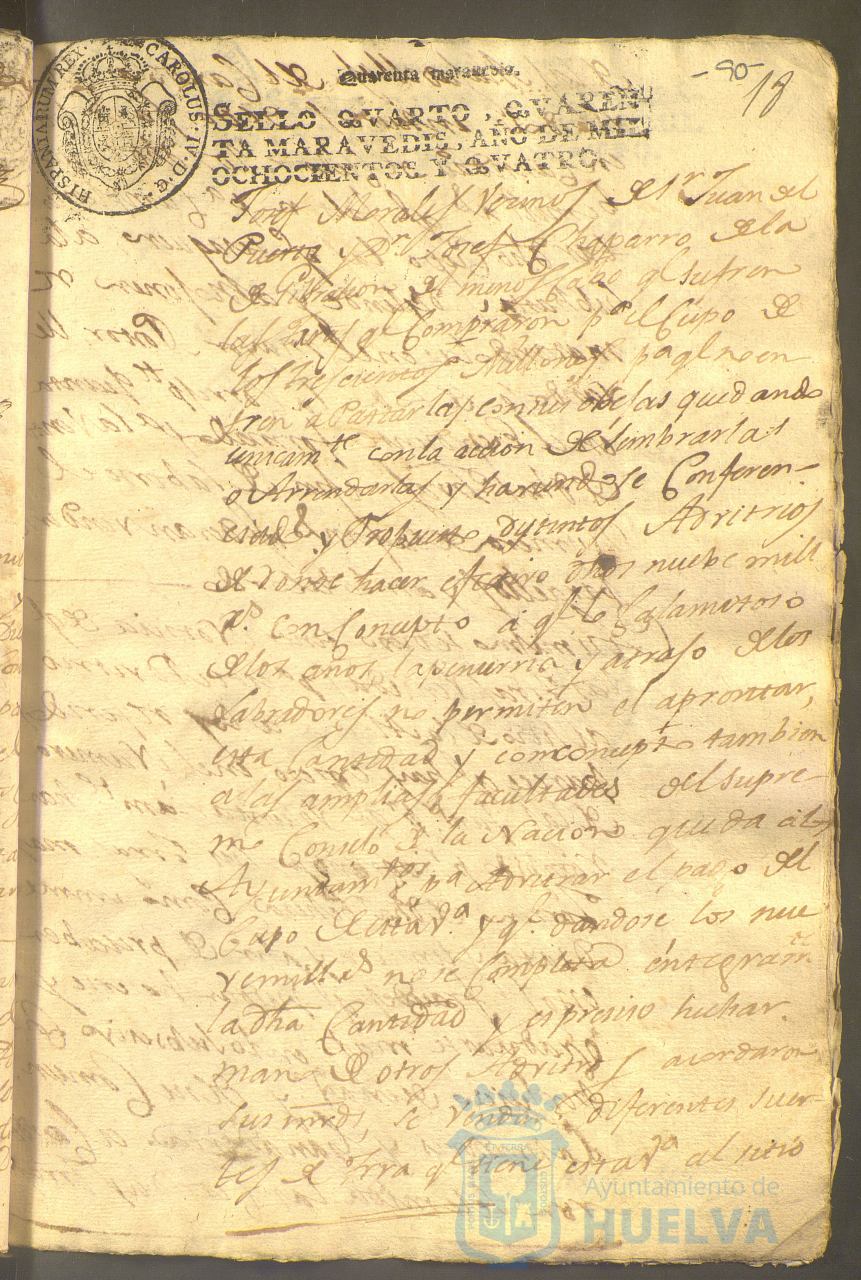 -90-
18
Quarenta maravedis.
SELLO QVARTO, QVAREN
TA MARAVEDIS, AÑO DE MIL
OCHOCIENTOS Y QVATRO.
HISPANIARUM REX. CAROLUS. IV. D. G.
Josef Morales Vecinos de Sn Juan del
Puerto y Dn Josef Chaparro de la
de Gibraleon el menos cabo qe sufren
las qe Compraron pa el Cupo de
los trescientos Millones pa qe no en
tren a Pastar las con sus obejas quedando
unicamte con la accion de simbrarlas
o Arrendarlas y haviendose Conferen-
ciado y Propuesto Dystintos Advitrios
de donde hacer efectivo dhos nuebe mill
rs con Concepto a qe lo Calamitoso
de los años la penurria y atraso de los
Labradores no permiten el aprontar,
esta Cantidad y con concepto tambien
a las amplias facultades del supre-
mo Consejo de la Nacion queda al
Ayuntamto pa Advitrar el pago del
Cupo de esta Va y qe dandose los nue
ve mill rs no se Completa entegramte
la dha Cantidad y es preciso hechar
mano de otros Advitrios acordaron
sus mrds se vendan diferentes suer-
tes de trra qe tiene esta Va al sitio
Ayuntamiento de
HUELVA